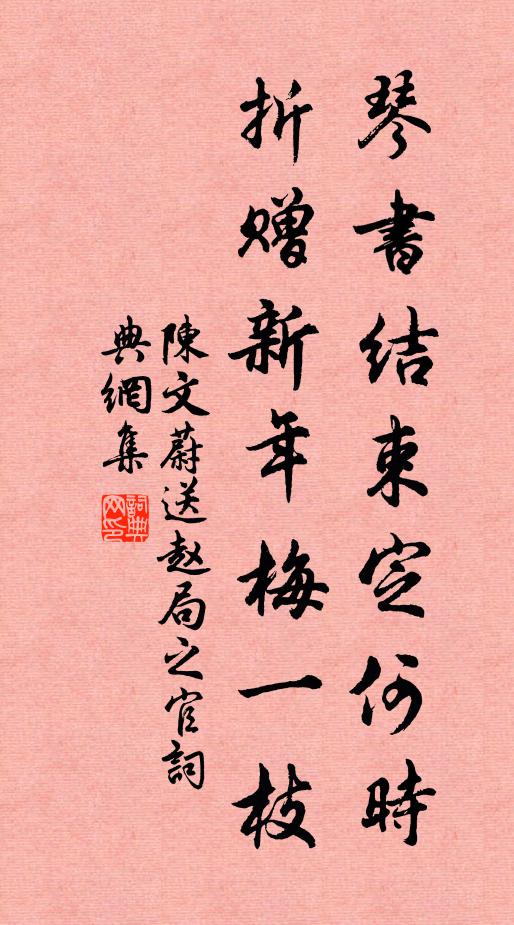 琴書結束定何時
折贈新年梅一枝
陳文蔚送赵局之官詞
典網集
詞典网印